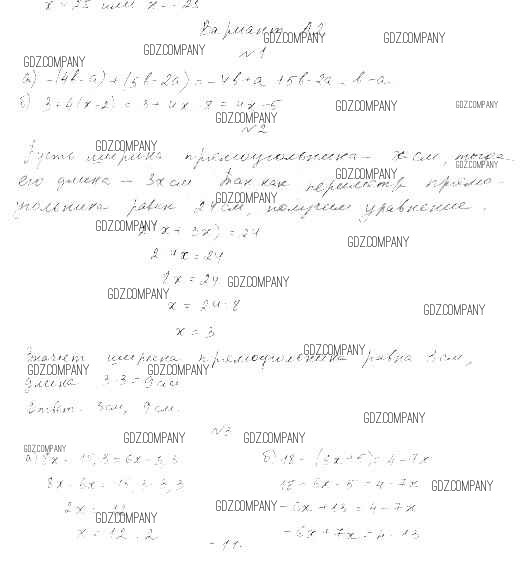 x = 23 или x = -23
Вариант А2
GDZ.COMPANY GDZ.COMPANY
GDZ.COMPANY
№1
GDZ.COMPANY
а) -(4b-a)+(5b-2a) = -4b+a+5b-2a = b-a.
б) 3+4(x-2) = 3+4x-8 = 4x-5
GDZ.COMPANY GDZ.COMPANY
GDZ.COMPANY
№2
GDZ.COMPANY
Пусть ширина прямоугольника - x см, тогда
GDZ.COMPANY
его длина - 3x см. Так как периметр прямо-
GDZ.COMPANY
GDZ.COMPANY
угольника равен 24 см, получим уравнение.
GDZ.COMPANY
2(x+3x) = 24
GDZ.COMPANY
2·4x = 24
8x = 24
GDZ.COMPANY
GDZ.COMPANY
x = 24:8
GDZ.COMPANY
x = 3
GDZ.COMPANY
Значит ширина прямоугольника равна 3 см,
GDZ.COMPANY GDZ.COMPANY
длина 3·3 = 9 см
Ответ: 3 см, 9 см.
GDZ.COMPANY
№3
GDZ.COMPANY GDZ.COMPANY
GDZ.COMPANY
а) 8x - 15,3 = 6x - 3,3
8x - 6x = 15,3 - 3,3
2x = 12
GDZ.COMPANY
x = 12:2
б) 18 - (6x+5) = 4-7x
18 - 6x - 5 = 4-7x
GDZ.COMPANY
GDZ.COMPANY
-6x+13 = 4-7x
-6x+7x = 4-13